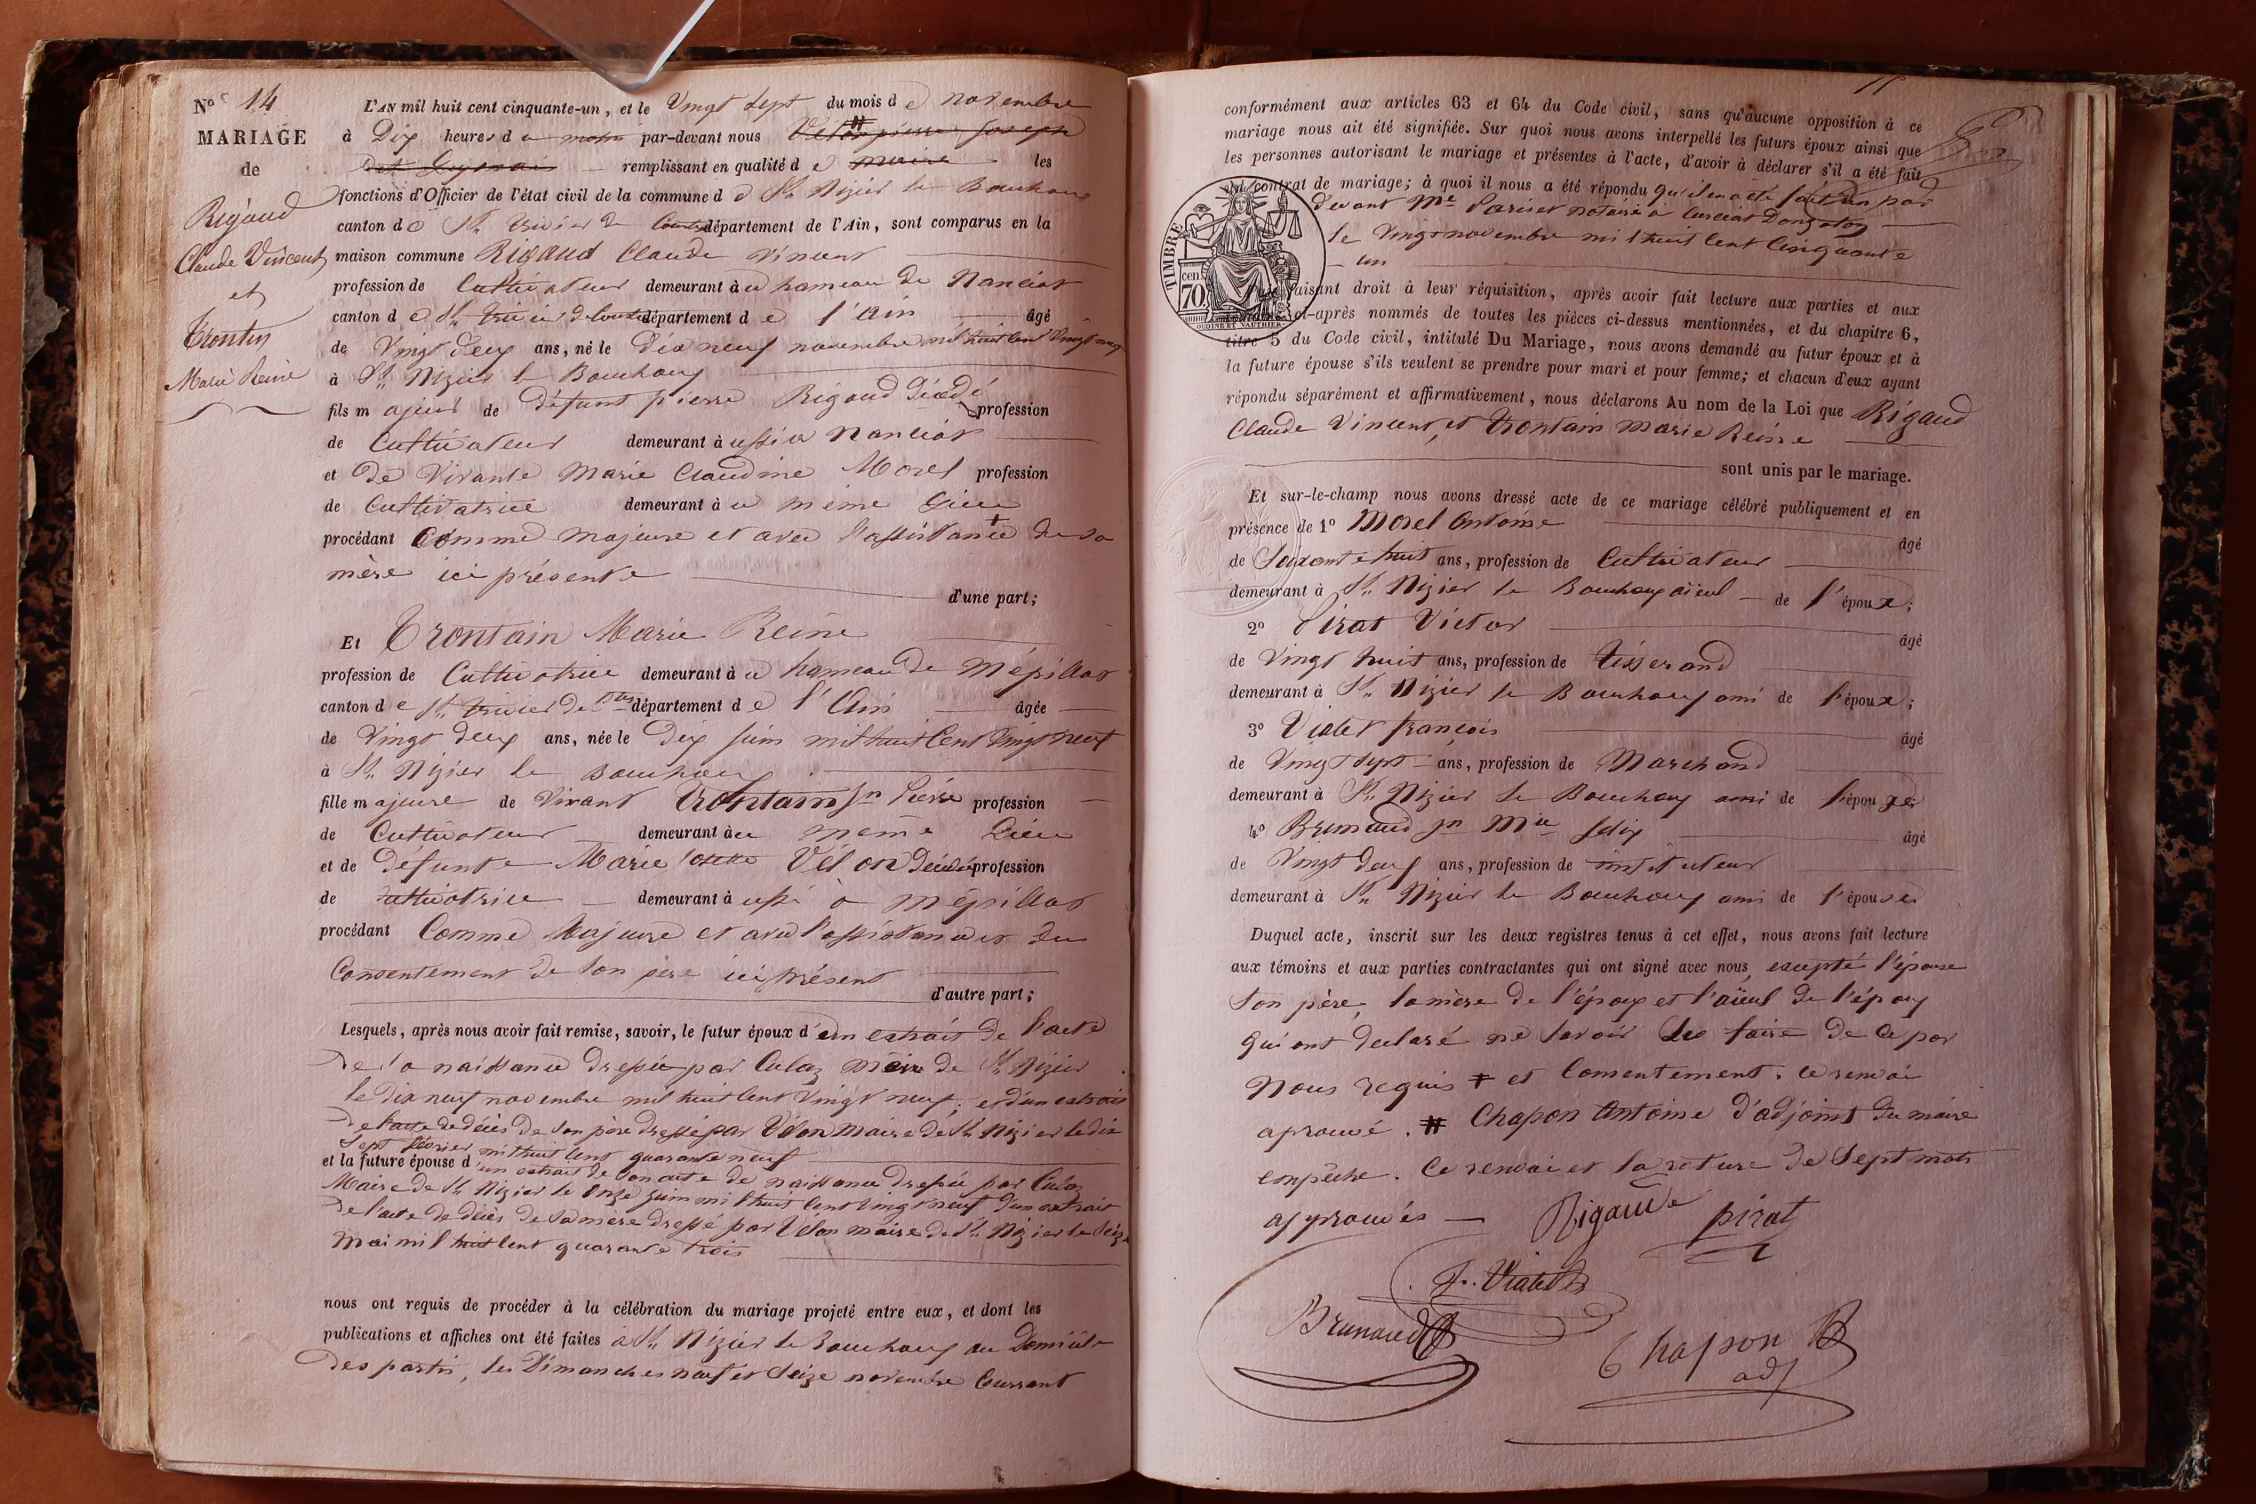 N° 14
MARIAGE
de
Rigaud
Claude Vincent
et
Trontin
Marie Reine
L'AN mil huit cent cinquante-un, et le Vingt sept du mois d e novembre
à Dix heures d u matin par-devant nous Vélon pierre joseph
remplissant en qualité d e maire les
fonctions d'Officier de l'état civil de la commune d e St Nizier le Bouchoux
canton d e St trivier de Courtes département de l'Ain, sont comparus en la
maison commune Rigaud Claude Vincent
profession de Cultivateur demeurant à u hameau de Nanciat
canton d e St trivier de Courtes département d e l'Ain âgé
de Vingt deux ans, né le dix neuf novembre mil huit cent vingt neuf
à St Nizier le Bouchoux
fils m ajeur de défunt pierre Rigaud décédé profession
de Cultivateur demeurant à ussi a Nanciat
et de Vivante Marie Claudine Morel profession
de Cultivatrice demeurant à u même Lieu
procédant Comme majeur et avec l'assistance + de sa
mère ici présente
d'une part;
Et Trontain Marie Reine
profession de Cultivatrice demeurant à u hameau de Mépillat
canton d e St trivier de Ctes département d e l'Ain âgée
de Vingt deux ans, née le Dix juin mil huit Cent Vingt neuf
à St Nizier le Bouchoux
fille m ajeure de Vivant Trontain jn Pierre profession
de Cultivateur demeurant à u même Lieu
et de defunte Marie Vélon décédée profession
de Cultivatrice demeurant à ussi à Mépillat
procédant Comme Majeure et avec l'assistance et du
Consentement de son père ici présent
d'autre part;
Lesquels, après nous avoir fait remise, savoir, le futur époux d'un extrait de l'acte
de sa naissance dressée par Culaz maire de St Nizier
le dix neuf novembre mil huit cent vingt neuf; et d'un extrait
de l'acte de décès de son père dressé par Vélon maire de St Nizier le dix
sept février mil huit cent quarante neuf
et la future épouse d'un extrait de son acte de naissance dressée par Culaz
Maire de St Nizier le Onze juin mil huit cent vingt neuf d'un extrait
de l'acte de décès de sa mère dressé par Vélon maire de St Nizier le Seize
Mai mil huit cent quarante trois
nous ont requis de procéder à la célébration du mariage projeté entre eux, et dont les
publications et affiches ont été faites à St Nizier le Bouchoux au Domicile
des partis, les Dimanches neuf et Seize novembre Courrant
conformément aux articles 63 et 64 du Code civil, sans qu'aucune opposition à ce
mariage nous ait été signifiée. Sur quoi nous avons interpellé les futurs époux ainsi que
les personnes autorisant le mariage et présentes à l'acte, d'avoir à déclarer s'il a été fait
contrat de mariage; à quoi il nous a été répondu qu'il en a été fait un par
devant Me notaire a Curciat Dongalon
le Vingt novembre mil huit cent Cinquante
un
TIMBRE
cen
70
OUDINÉ ET VAUTHIER
faisant droit à leur réquisition, après avoir fait lecture aux parties et aux
ci-après nommés de toutes les pièces ci-dessus mentionnées, et du chapitre 6,
titre 5 du Code civil, intitulé Du Mariage, nous avons demandé au futur époux et à
la future épouse s'ils veulent se prendre pour mari et pour femme; et chacun d'eux ayant
répondu séparément et affirmativement, nous déclarons Au nom de la Loi que Rigaud
Claude Vincent, et Trontain Marie Reine
sont unis par le mariage.
Et sur-le-champ nous avons dressé acte de ce mariage célébré publiquement et en
présence de 1° Morel Antoine
âgé
de Soixante huit ans, profession de Cultivateur
demeurant à St Nizier le Bouchoux aïeul de l'époux;
2° Pirat Victor
âgé
de Vingt huit ans, profession de tisserand
demeurant à St Nizier le Bouchoux ami de l'époux;
3° Vialet françois
âgé
de Vingt sept ans, profession de Marchand
demeurant à St Nizier le Bouchoux ami de l'épouse;
4° Brunaud jn Mie félix
âgé
de Vingt deux ans, profession de instituteur
demeurant à St Nizier le Bouchoux ami de l'épouse
Duquel acte, inscrit sur les deux registres tenus à cet effet, nous avons fait lecture
aux témoins et aux parties contractantes qui ont signé avec nous excepté l'épouse
Son père, la mère de l'époux et l'aïeul de l'époux
qui ont declaré ne savoir le faire de ce par
Nous requis + et Consentement. Ce renvoi
aprouvé. # Chapon Antoine d'adjoint du maire
empêche. Ce renvoi et la rature de Sept mots
approuvés
Rigaud
pirat
F. Vialet
Brunaud
Chapon
adj